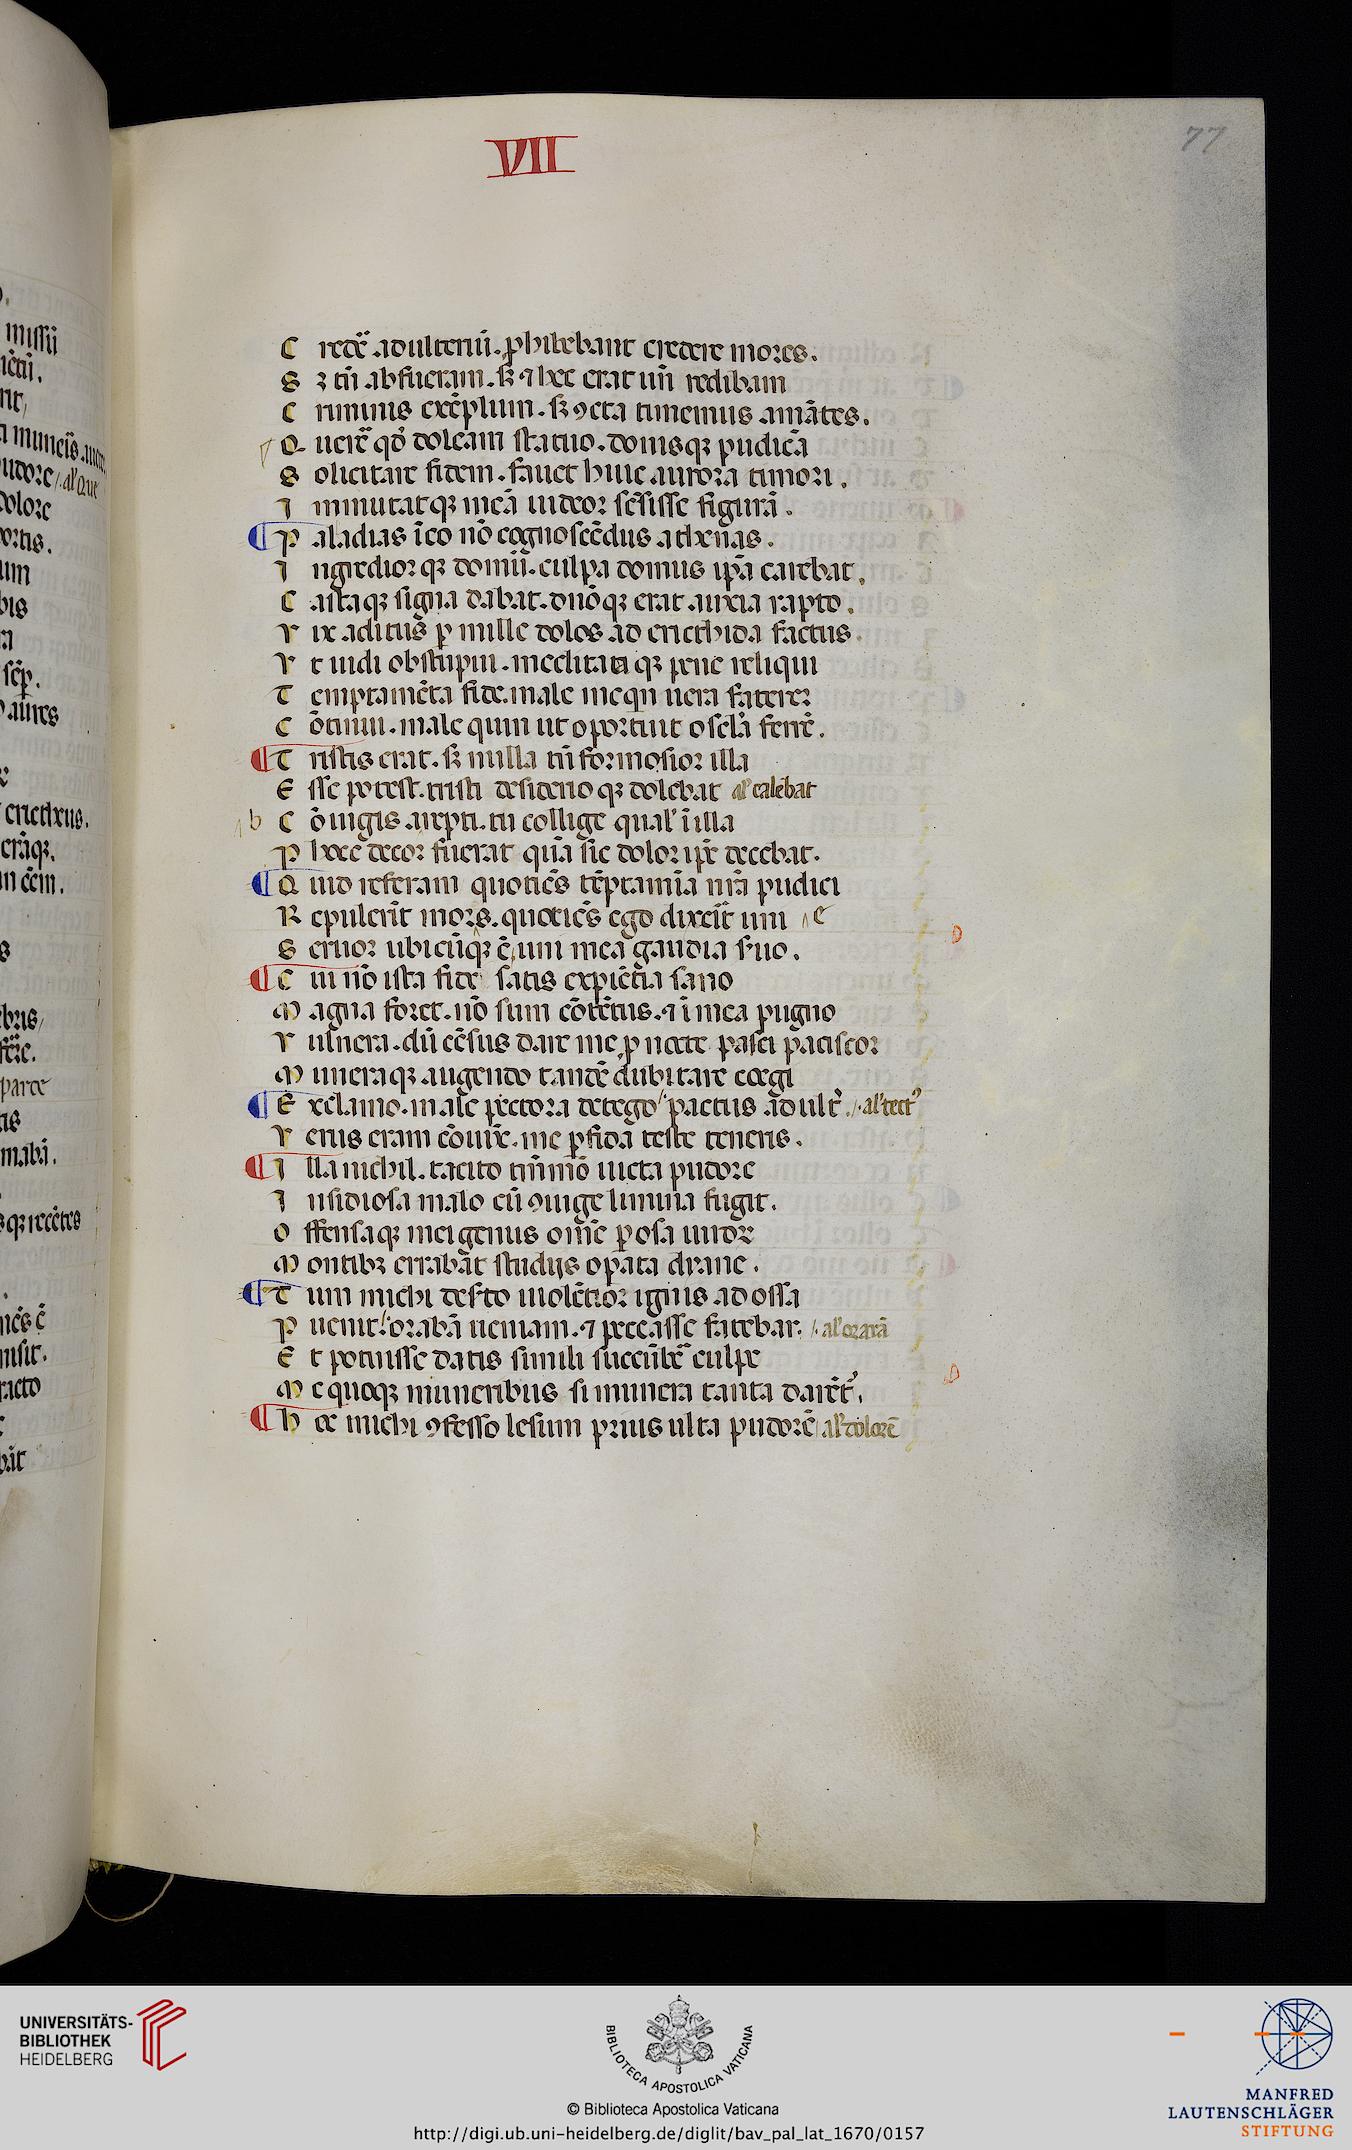 VII
77
C redẽ adulteriũ. ꝓhibebant credere mores.
S ꝫ tñ abfueram. sꝫ ⁊ hec erat uñ redibam
C riminis exẽplum. sꝫ ꝯcta timemus amãtes.
Q uerẽ qđ doleam statuo. donisqꝫ pudicã
S olicitare fidem. fauet huic aurora timori.
I mmutatqꝫ meã uideor sẽsisse figurã.
P aladias ĩeo nõ cognoscẽdus athenas.
I ngredior qꝫ domũ. culpa domus ipã carebat.
C astaqꝫ signa dabat. dnõqꝫ erat anxia rapto.
V ix aditus ꝑ mille dolos ad erecthida factus.
V t uidi obstupui. meditata qꝫ pene reliqui
T emptamẽta fide. male me qn uera faterer
C õtinui. male quin ut oportuit oscla ferrẽ.
T ristis erat. sꝫ nulla tñ formosior illa
E sse potest. tristi desiderio qꝫ dolebat al' calebat
b C õiugis arepti. tu collige qual' ĩ illa
P hoce decor fuerat quã sic dolor ipẽ decebat.
Q uid referam quotiẽs tẽptamĩa nrã pudici
R epulerĩt mores. quotiẽs ego dixerit uni e
S eruor ubicũqꝫ ẽ. uni mea gaudia s'uo.
C ui nõ ista fide satis expiẽtia sano
M agna foret. nõ sum cõtẽtus. ⁊ ĩ mea pugno
V ulnera. dũ cẽsus dare me ꝓ nocte pasci paciscor
M uneraqꝫ augendo tandẽ dubitare coegi
E xclamo. male pectora detego pactus adult̃. al' tect᾽
V erus eram cõiux. me ꝑfida teste teneris.
I lla nichil. tacito tm̃mõ uicta pudore
I nsidiosa malo cũ ꝯiuge limina fugit.
O ffensaqꝫ mei genus om̃e ꝑosa uiror
M ontibꝫ errabãt studijs opata dyane.
T um michi des'to uiolẽtior ignis ad ossa
P uenit. orabã ueniam. ⁊ peccasse fatebar. al' orarã
E t potuisse datis simili succũbẽ culpe
M e quoqꝫ muneribus si munera tanta darẽt᾽.
H ec michi ꝯfesso lesum prius ulta pudorẽ al' dolorẽ
UNIVERSITÄTS-
BIBLIOTHEK
HEIDELBERG
BIBLIOTECA APOSTOLICA VATICANA
© Biblioteca Apostolica Vaticana
http://digi.ub.uni-heidelberg.de/diglit/bav_pal_lat_1670/0157
MANFRED
LAUTENSCHLÄGER
STIFTUNG